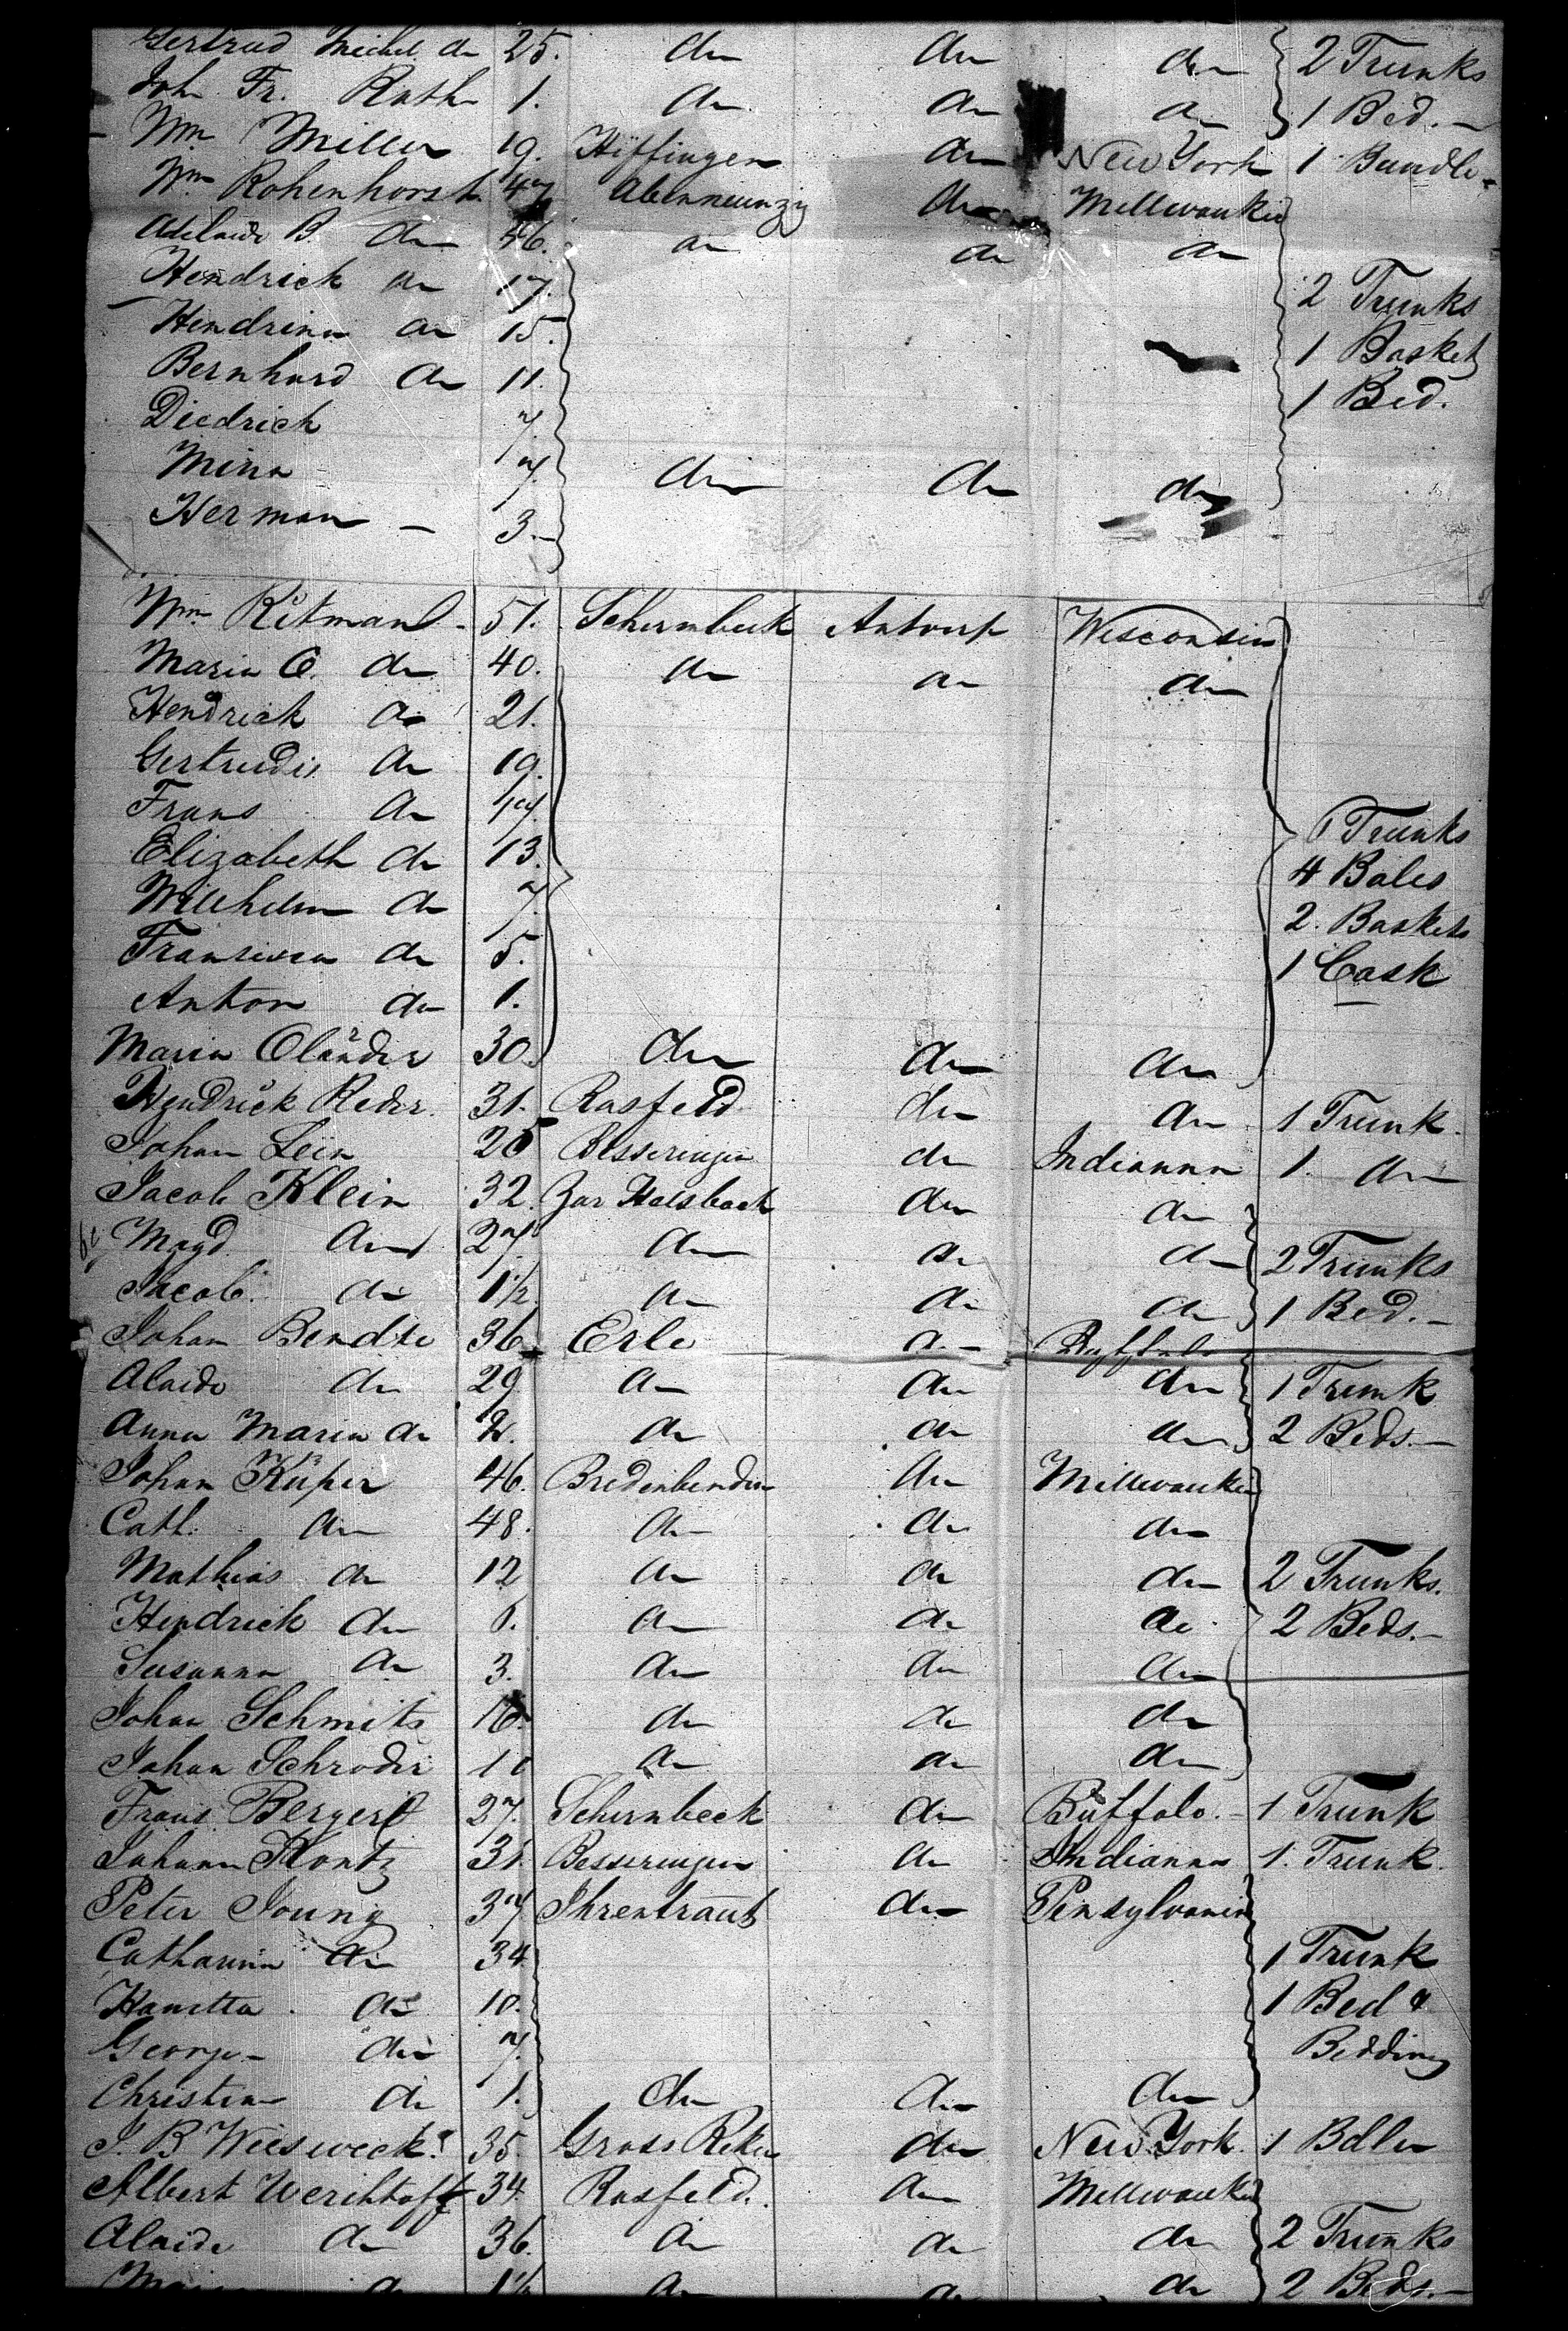 Gertrud Michel do 25. do do do 2 Trunks
Joh Fr. Rath 1. do do do 1 Bed.—
Wm Miller 19. Hiffingen do New York 1 Bundle
Wm Rohenhorst 47 do Millwaukie
Adelaide B. do 46. do do do
Hendrick do 17. 2 Trunks
Hendrina do 15. 1 Basket
Bernhard do 11. 1 Bed.
Diedrich 7.
Mina 7. do do do
Herman — 3.—
Wm Ritman 51. Schermbeck Antwerp Wisconsin
Maria C. do 40. do do do
Hendrick do 21.
Gertrudis do 19.
Frans do 17. Trunks
Elizabeth do 13. 4 Bales
Willhelm do 7. 2. Baskets
Fransisca do 5. 1 Cask
Anton do 1.
Maria Oländer 30. do do do
Hendrick Reder. 31. Rasfeld do do 1 Trunk.
Johan Lein 25 Besseringen do Indianna 1. do
Jacob Klein 32. Zur Halsbach do do
Magd. do 27. do do do 2 Trunks
Jacob. do 1½ do do do 1 Bed.—
Johan Bendte 36 Erle do Buffalo
Alaide do 29 do do do 1 Trunk
Anna Maria do do do do 2 Beds.—
Johan Küper 46. Bredenbenden do Millwaukie
Cath. do 48. do do do
Mathias do 12 do do do 2 Trunks.
Hendrick do do do do 2 Beds.—
Susanna do 3. do do do
Johan Schmits 16. do do do
Johan Schroder 10 do do do
Frans Bergerf 27. Schermbeck do Buffalo.— 1 Trunk
Johann Kontz 31. Besseringen do Indianna 1. Trunk.
Peter Young 37 Ihrentraut do Pensylvania
Catharina do 34 1 Trunk
Hanetta. do 10. 1 Bed &
George do 7. Bedding
Christina do 1. do do do
J. B Wiesweck. 35. Gross Reken do New York. 1 Bdle
Albert Werihtoff 34. Rasfeld. do Millwaukie
Alaide do 36. do do do 2 Trunks
Maria do 1½ do do do 2 Beds.—